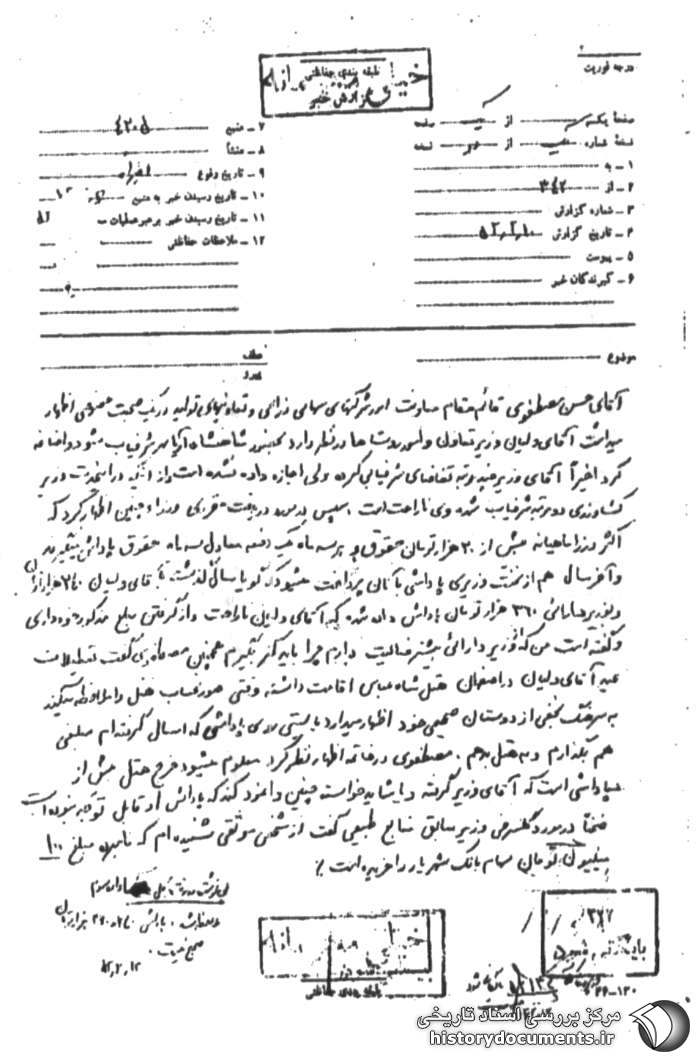 درجه فوریت
طبقه بندی حفاظتی
خیلی محرمانه
گزارش خبر
صفحه یک از یک صفحه
نسخه شماره از نسخه
۱ - به
۲ - از ۳۴۲
۳ - شماره گزارش
۴ - تاریخ گزارش
۵ - پیوست
۶ - گیرندگان خبر
۷ - منبع
۸ - منشأ
۹ - تاریخ وقوع
۱۰ - تاریخ رسیدن خبر به منبع
۱۱ - تاریخ رسیدن خبر به رهبر عملیات
۱۲ - ملاحظات حفاظتی
موضوع
عطف
پیرو
آقای حسن مصطفوی قائم مقام معاونت امور شرکتهای سهامی زراعی و تعاونیهای تولید در یک صحبت خصوصی اظهار
میداشت آقای ولیان وزیر تعاون و امور روستاها در نظر دارد بحضور شاهنشاه آریامهر شرفیاب شود و اضافه
کرد اخیراً آقای وزیر چند مرتبه تقاضای شرفیابی کرده ولی اجازه داده نشده است و از اینکه در این مدت وزیر
کشاورزی دو مرتبه شرفیاب شده وی ناراحت است. سپس در مورد دریافت حقوق وزراء چنین اظهار کرد که
اکثر وزرا ماهیانه بیش از ۲۰ هزار تومان حقوق و هر سه ماه یک دفعه معادل سه ماه حقوق پاداش میگیرند
و آخر سال هم از نخست وزیری پاداشی به آنان پرداخت میشود که گویا سال گذشته به آقای ولیان ۲۴۰ هزار تومان
و به وزیر دارائی ۳۶۰ هزار تومان پاداش داده شده که آقای ولیان ناراحت و از گرفتن مبلغ مذکور خودداری
و گفته است من که از وزیر دارائی بیشتر فعالیت دارم چرا باید کمتر بگیرم همچنین مصطفوی گفت تعطیلات
عید آقای ولیان در اصفهان هتل شاه عباس اقامت داشته وقتی صورتحساب هتل را ملاحظه میکند
به سرهنگ نجفی از دوستان صمیمی خود اظهار میدارد بایستی روی پاداشی که امسال گرفته ام مبلغی
هم بگذارم و به هتل بدهم. مصطفوی در خاتمه اظهار نظر کرد معلوم میشود خرج هتل بیش از
پاداشی است که آقای وزیر گرفته و یا شاید خواسته چنین وانمود کند که پاداش او قابل توجه نبوده است
ضمناً در مورد گلسرخی وزیر سابق منابع طبیعی گفت از شخص موثقی شنیده ام که نامبرده مبلغ ۱۰۰
میلیون تومان سهام بانک شهریار را خریده است ٪
صحیح نیست.
خیلی محرمانه
طبقه بندی حفاظتی
بایگانی شود
مرکز بررسی اسناد تاریخی
historydocuments.ir